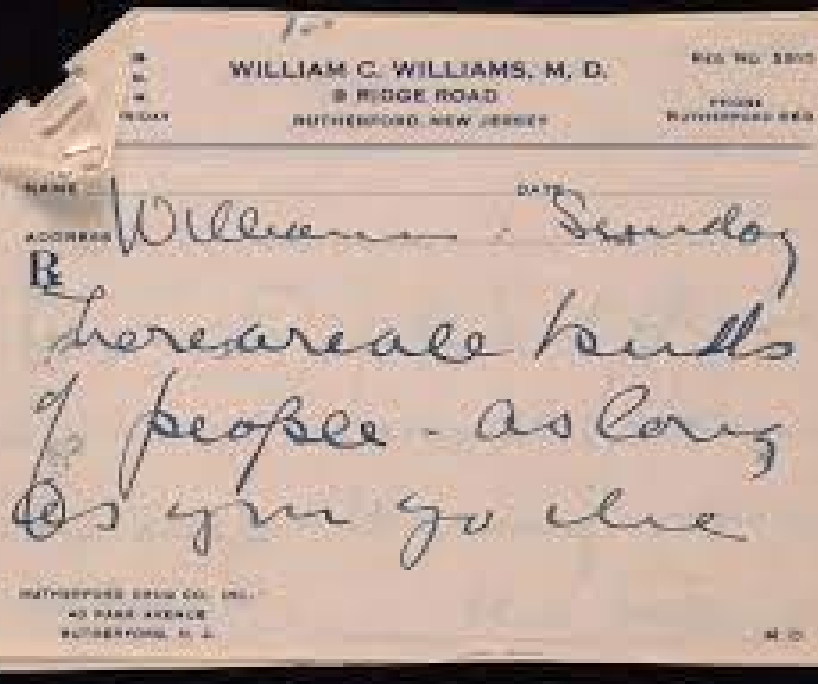 WILLIAM C. WILLIAMS, M. D.
9 RIDGE ROAD
RUTHERFORD, NEW JERSEY
REG. NO.
PHONE
RUTHERFORD
FRIDAY
NAME
DATE
ADDRESS William Sunday
℞
there are all kinds
of people - as long
as you go
RUTHERFORD DRUG CO., INC.
40 PARK AVENUE
RUTHERFORD, N. J.
M. D.